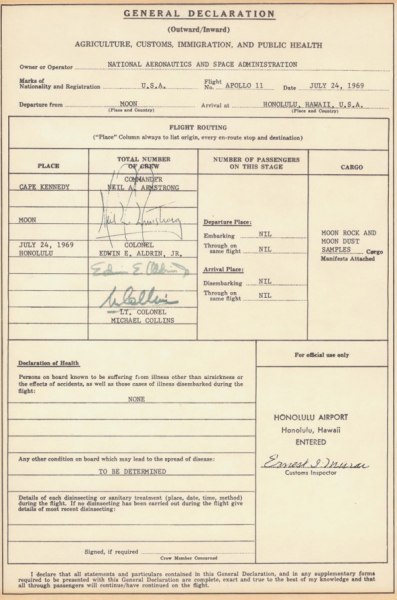 GENERAL DECLARATION
(Outward/Inward)
AGRICULTURE, CUSTOMS, IMMIGRATION, AND PUBLIC HEALTH
Owner or Operator NATIONAL AERONAUTICS AND SPACE ADMINISTRATION
Marks of Nationality and Registration U.S.A. Flight No. APOLLO 11 Date JULY 24, 1969
Departure from MOON Arrival at HONOLULU, HAWAII, U.S.A.
(Place and Country) (Place and Country)
FLIGHT ROUTING
("Place" Column always to list origin, every en-route stop and destination)
PLACE
TOTAL NUMBER OF CREW
NUMBER OF PASSENGERS ON THIS STAGE
CARGO
CAPE KENNEDY
COMMANDER
NEIL A. ARMSTRONG
MOON
Neil A. Armstrong
JULY 24, 1969
HONOLULU
COLONEL
EDWIN E. ALDRIN, JR.
Edwin E. Aldrin Jr
M Collins
LT. COLONEL
MICHAEL COLLINS
Departure Place:
Embarking NIL
Through on same flight NIL
Arrival Place:
Disembarking NIL
Through on same flight NIL
MOON ROCK AND
MOON DUST
SAMPLES Cargo
Manifests Attached
Declaration of Health
Persons on board known to be suffering from illness other than airsickness or
the effects of accidents, as well as those cases of illness disembarked during the
flight:
NONE
Any other condition on board which may lead to the spread of disease:
TO BE DETERMINED
Details of each disinsecting or sanitary treatment (place, date, time, method)
during the flight. If no disinsecting has been carried out during the flight give
details of most recent disinsecting:
Signed, if required
Crew Member Concerned
For official use only
HONOLULU AIRPORT
Honolulu, Hawaii
ENTERED
Ernest I. Murai
Customs Inspector
I declare that all statements and particulars contained in this General Declaration, and in any supplementary forms
required to be presented with this General Declaration are complete, exact and true to the best of my knowledge and that
all through passengers will continue/have continued on the flight.